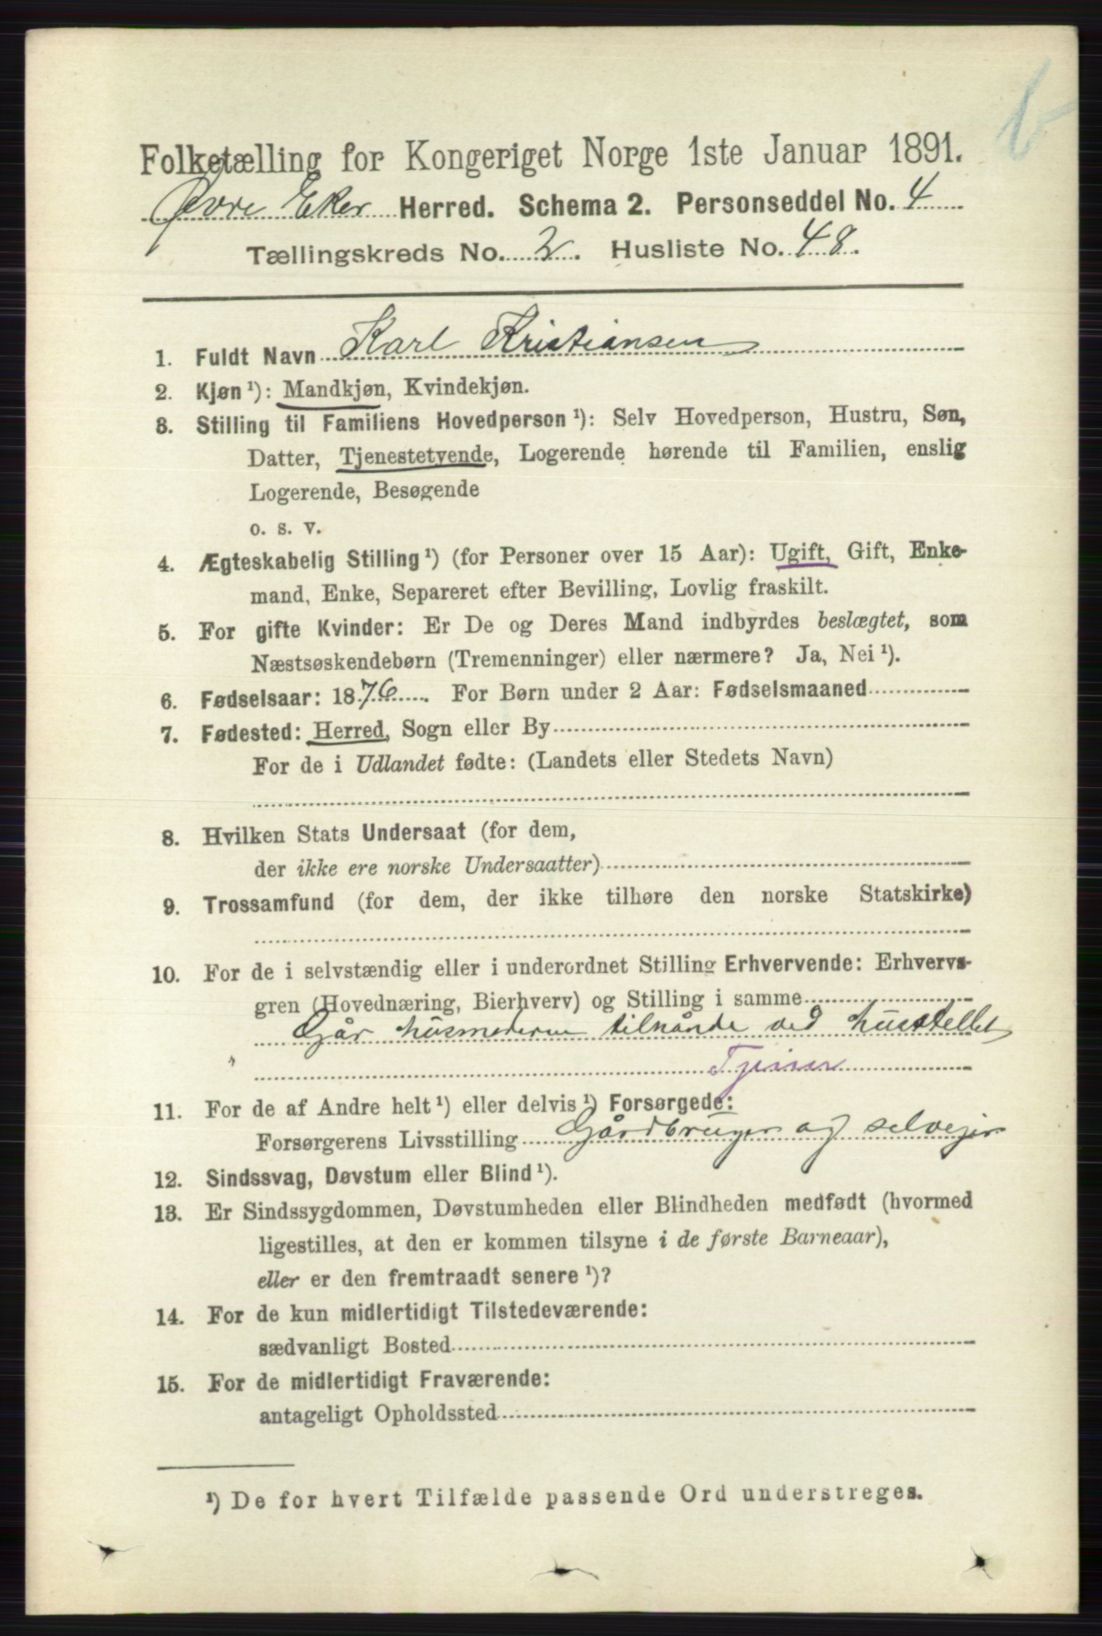 b
Folketælling for Kongeriget Norge 1ste Januar 1891.
Øvre Eker Herred. Schema 2. Personseddel No. 4
Tællingskreds No. 2. Husliste No. 48.
1. Fuldt Navn Karl Kristiansen
2. Kjøn ¹): Mandkjøn, Kvindekjøn.
3. Stilling til Familiens Hovedperson ¹): Selv Hovedperson, Hustru, Søn,
Datter, Tjenestetyende, Logerende hørende til Familien, enslig
Logerende, Besøgende
o. s. v.
4. Ægteskabelig Stilling ¹) (for Personer over 15 Aar): Ugift, Gift, Enke-
mand, Enke, Separeret efter Bevilling, Lovlig fraskilt.
5. For gifte Kvinder: Er De og Deres Mand indbyrdes beslægtet, som
Næstsøskendebørn (Tremenninger) eller nærmere? Ja, Nei ¹).
6. Fødselsaar: 1876. For Børn under 2 Aar: Fødselsmaaned
7. Fødested: Herred, Sogn eller By
For de i Udlandet fødte: (Landets eller Stedets Navn)
8. Hvilken Stats Undersaat (for dem,
der ikke ere norske Undersaatter)
9. Trossamfund (for dem, der ikke tilhøre den norske Statskirke)
10. For de i selvstændig eller i underordnet Stilling Erhvervende: Erhvervs-
gren (Hovednæring, Bierhverv) og Stilling i samme
Går husmoderen tilhånde ved husstellet
Tjener
11. For de af Andre helt ¹) eller delvis ¹) Forsørgede:
Forsørgerens Livsstilling Gårdbruger og selveier
12. Sindssvag, Døvstum eller Blind ¹).
13. Er Sindssygdommen, Døvstumheden eller Blindheden medfødt (hvormed
ligestilles, at den er kommen tilsyne i de første Barneaar),
eller er den fremtraadt senere ¹)?
14. For de kun midlertidigt Tilstedeværende:
sædvanligt Bosted
15. For de midlertidigt Fraværende:
antageligt Opholdssted
¹) De for hvert Tilfælde passende Ord understreges.